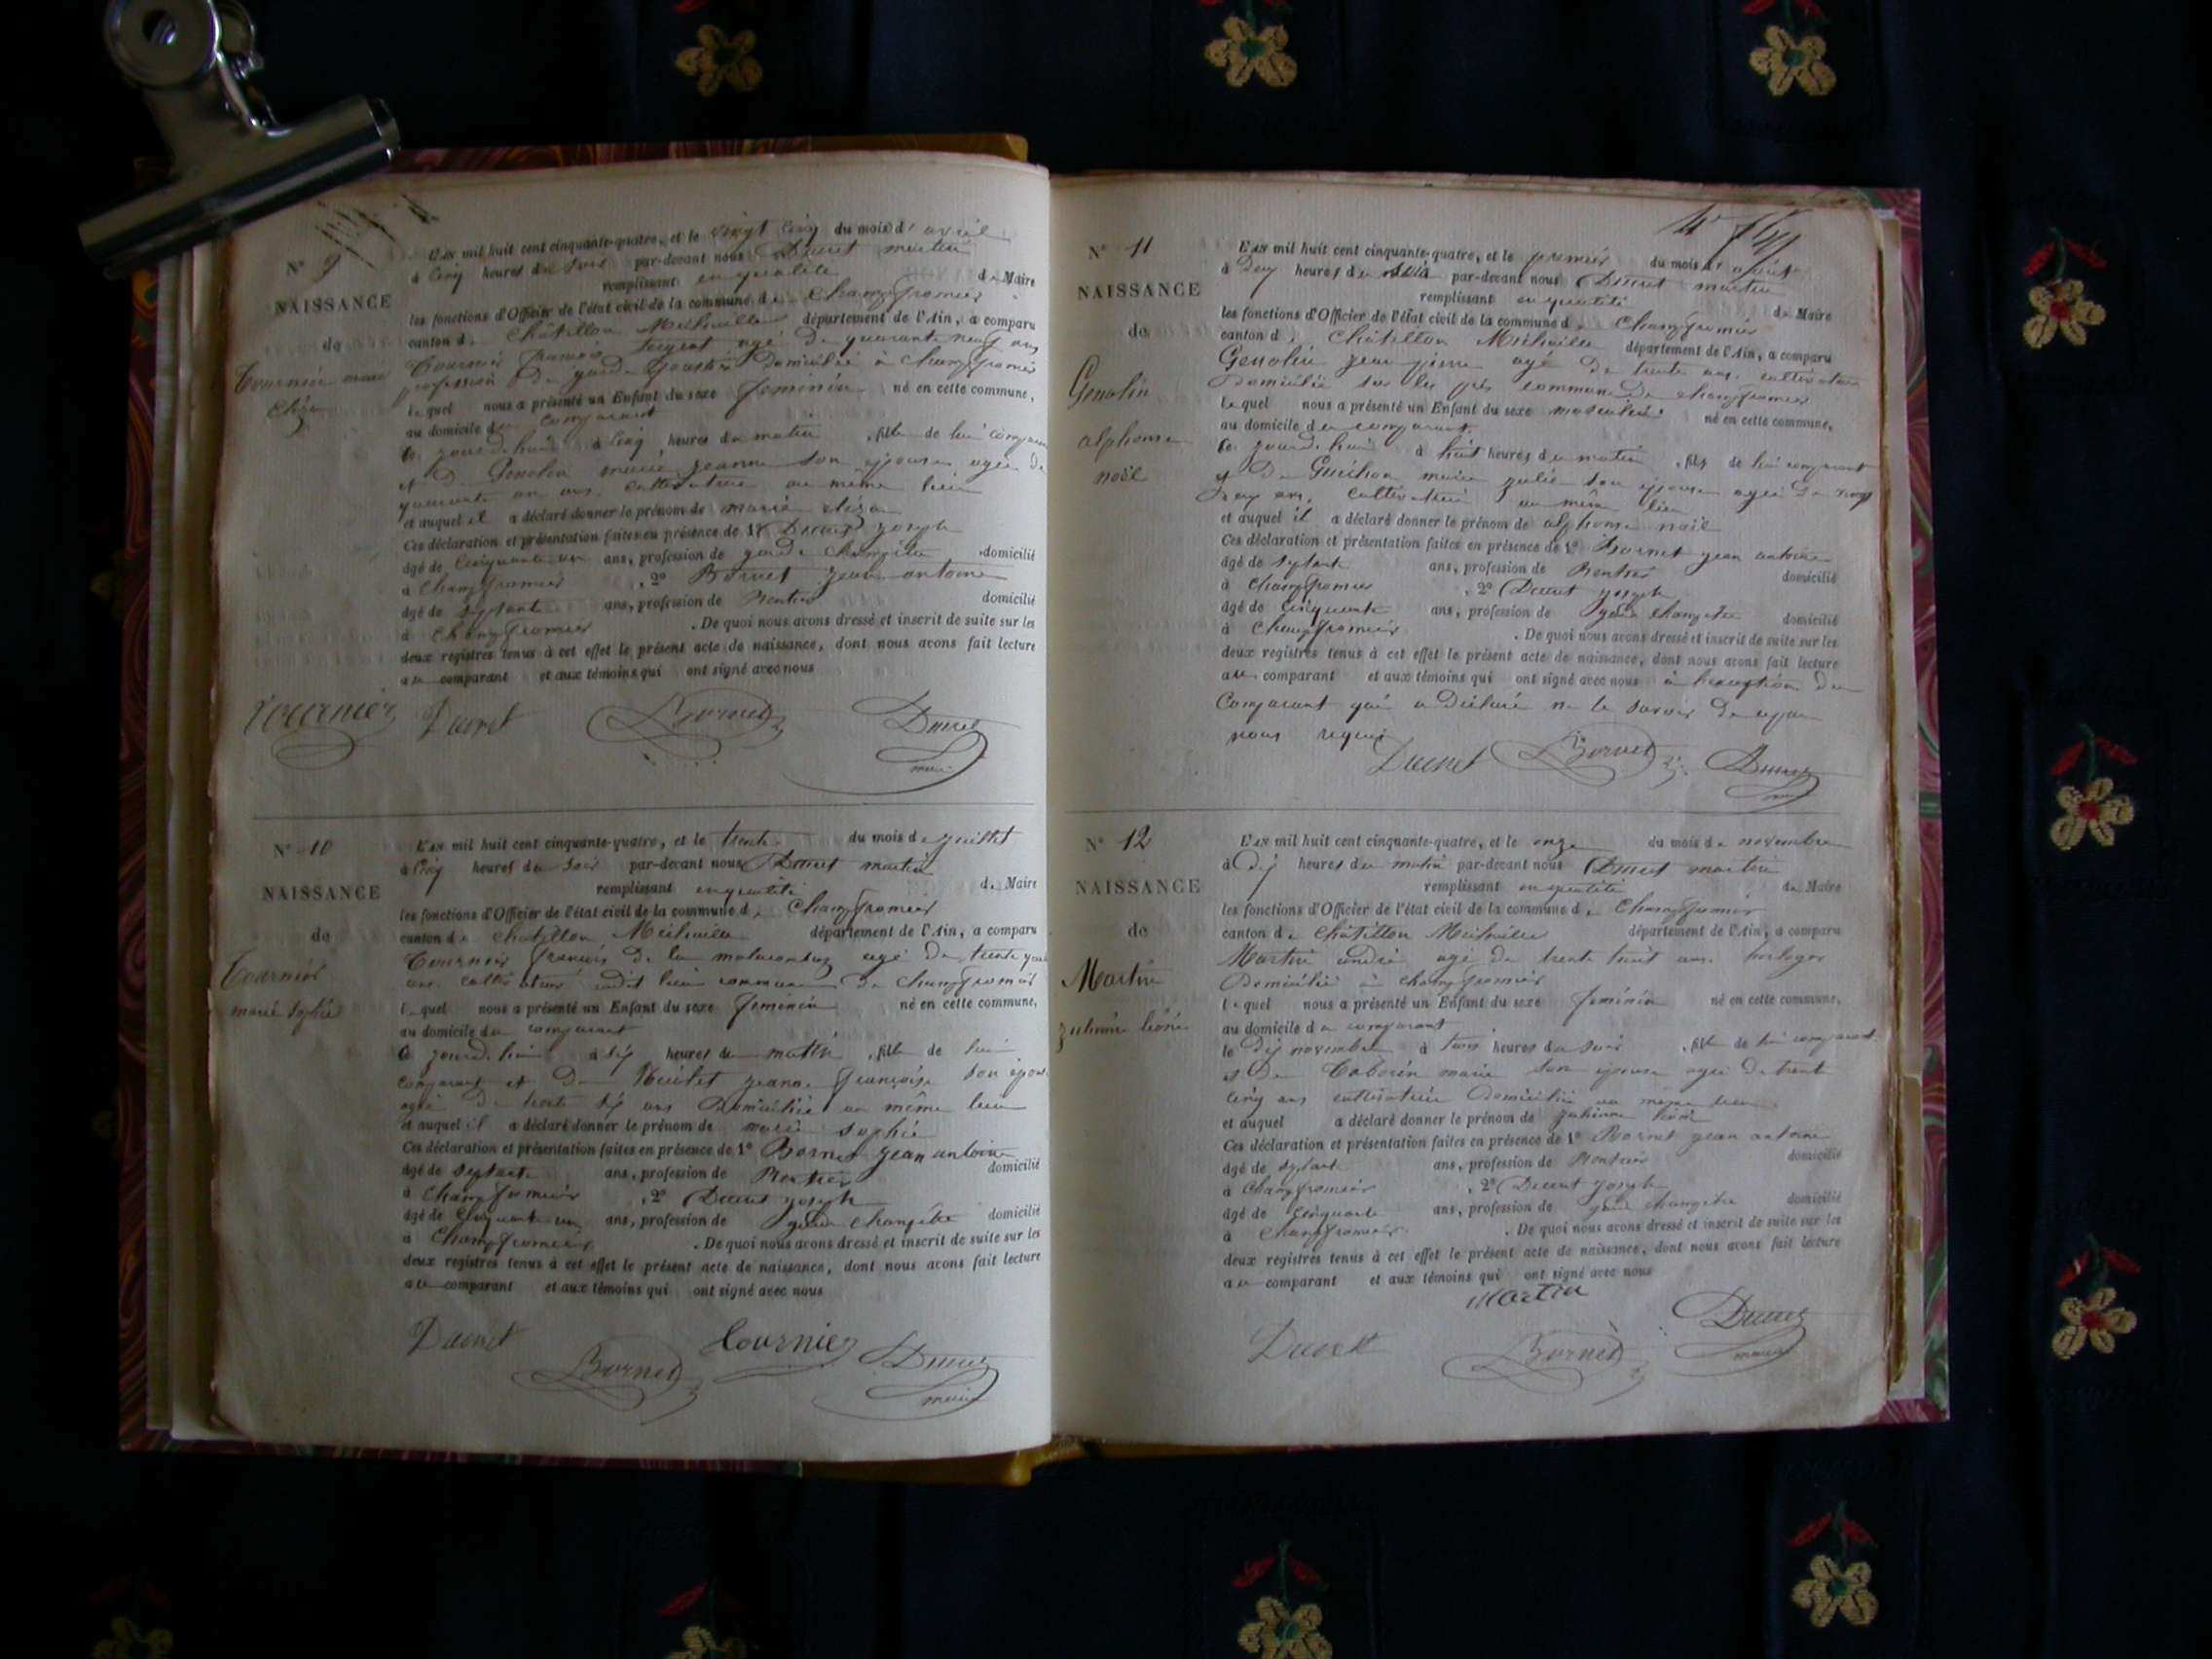 N° 9
NAISSANCE
de
Tournier marie
L'an mil huit cent cinquante-quatre, et le vingt cinq du mois d'avril
à cinq heures du soir par-devant nous Ducret martin
remplissant en qualité de Maire
les fonctions d'Officier de l'état civil de la commune de Champfromier
canton de Châtillon Michaille département de l'Ain, a comparu
Tournier françois Sergent agé de quarante neuf ans
profession de garde forestier Domicilié à champfromier
lequel nous a présenté un Enfant du sexe feminin né en cette commune,
au domicile du comparant
Ce jourd'hui à cinq heures du matin, fille de lui comparant
et de Genolin marie jeanne son épouse agée de
quarante un ans, cultivatrice au même lieu
et auquel il a déclaré donner le prénom de marie
Ces déclaration et présentation faites en présence de 1° Ducret joseph
âgé de cinquante un ans, profession de garde champêtre domicilié
à Champfromier, 2° Bornet jean antoine
âgé de septante ans, profession de Rentier domicilié
à Champfromier. De quoi nous avons dressé et inscrit de suite sur les
deux registres tenus à cet effet le présent acte de naissance, dont nous avons fait lecture
au comparant et aux témoins qui ont signé avec nous
Tournier Ducret Bornet Ducret
maire
N° 10
NAISSANCE
de
Tournier
marie Sophie
L'an mil huit cent cinquante-quatre, et le trente du mois de juillet
à cinq heures du soir par-devant nous Ducret martin
remplissant en qualité de Maire
les fonctions d'Officier de l'état civil de la commune de Champfromier
canton de chatillon Michaille département de l'Ain, a comparu
Tournier françois de la agé de trente
ans cultivateur audit lieu commune de champfromier
lequel nous a présenté un Enfant du sexe feminin né en cette commune,
au domicile du comparant
Ce jourd'hui à heures du matin, fille de lui
comparant et de jeanne françoise son épouse
agée de trente ans Domiciliée au même lieu
et auquel il a déclaré donner le prénom de marie sophie
Ces déclaration et présentation faites en présence de 1° Bornet jean antoine
âgé de septante ans, profession de Rentier domicilié
à Champfromier, 2° Ducret joseph
âgé de cinquante un ans, profession de garde champêtre domicilié
à Champfromier. De quoi nous avons dressé et inscrit de suite sur les
deux registres tenus à cet effet le présent acte de naissance, dont nous avons fait lecture
au comparant et aux témoins qui ont signé avec nous
Ducret Bornet Tournier Ducret
maire
N° 11
NAISSANCE
de
Genolin
alphonse
noël
L'an mil huit cent cinquante-quatre, et le premier du mois d'
à Deux heures du soir par-devant nous Ducret martin
remplissant en qualité de Maire
les fonctions d'Officier de l'état civil de la commune de Champfromier
canton de Châtillon Michaille département de l'Ain, a comparu
Genolin jean pierre agé de trente ans, cultivateur
Domicilié sur les prés commune de champfromier
lequel nous a présenté un Enfant du sexe masculin né en cette commune,
au domicile du comparant
Ce jourd'hui à huit heures du matin, fils de lui comparant
et de marie julie son épouse agée de vingt
Deux ans, cultivatrice au même lieu
et auquel il a déclaré donner le prénom de alphonse noël
Ces déclaration et présentation faites en présence de 1° Bornet jean antoine
âgé de septante ans, profession de Rentier domicilié
à Champfromier, 2° Ducret joseph
âgé de cinquante ans, profession de garde champêtre domicilié
à Champfromier. De quoi nous avons dressé et inscrit de suite sur les
deux registres tenus à cet effet le présent acte de naissance, dont nous avons fait lecture
au comparant et aux témoins qui ont signé avec nous à l'exception du
Comparant qui a déclaré ne le savoir de
nous requis
Ducret Bornet Ducret
maire
N° 12
NAISSANCE
de
Martin
L'an mil huit cent cinquante-quatre, et le onze du mois de novembre
à dix heures du matin par-devant nous Ducret martin
remplissant en qualité de Maire
les fonctions d'Officier de l'état civil de la commune de Champfromier
canton de Châtillon Michaille département de l'Ain, a comparu
Martin andré agé de trente huit ans, horloger
Domicilié à champfromier
lequel nous a présenté un Enfant du sexe feminin né en cette commune,
au domicile du comparant
le dix novembre à trois heures du soir, fille de lui comparant
et de marie son épouse agée de trente
cinq ans cultivatrice Domiciliée au même lieu
et auquel a déclaré donner le prénom de
Ces déclaration et présentation faites en présence de 1° Bornet jean antoine
âgé de septante ans, profession de Rentier domicilié
à Champfromier, 2° Ducret joseph
âgé de cinquante ans, profession de garde champêtre domicilié
à Champfromier. De quoi nous avons dressé et inscrit de suite sur les
deux registres tenus à cet effet le présent acte de naissance, dont nous avons fait lecture
au comparant et aux témoins qui ont signé avec nous
Martin
Ducret Bornet Ducret
maire